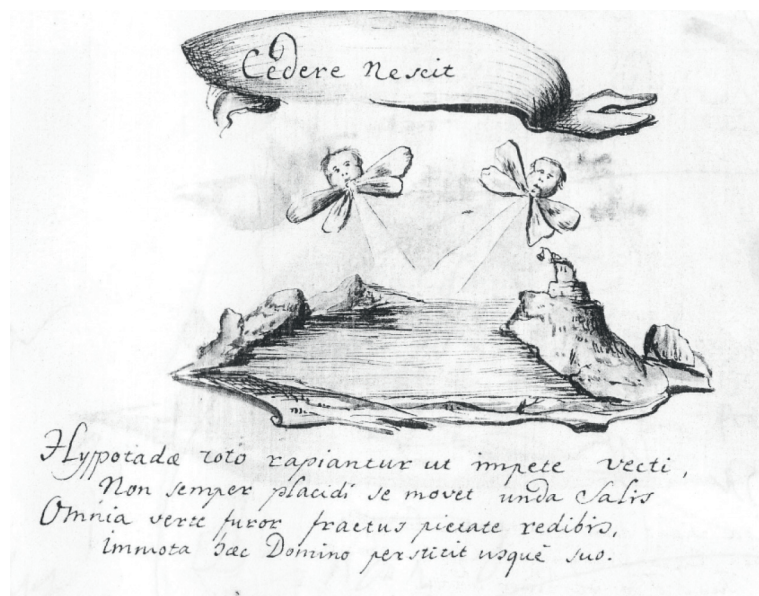 Cedere Nescit
Hypotadæ toto rapiantur ut impete vecti,
Non semper placidi se movet unda Salis
Omnia verte furor fractus pietate redibis,
Immota hæc Domino perstitit usquè suo.